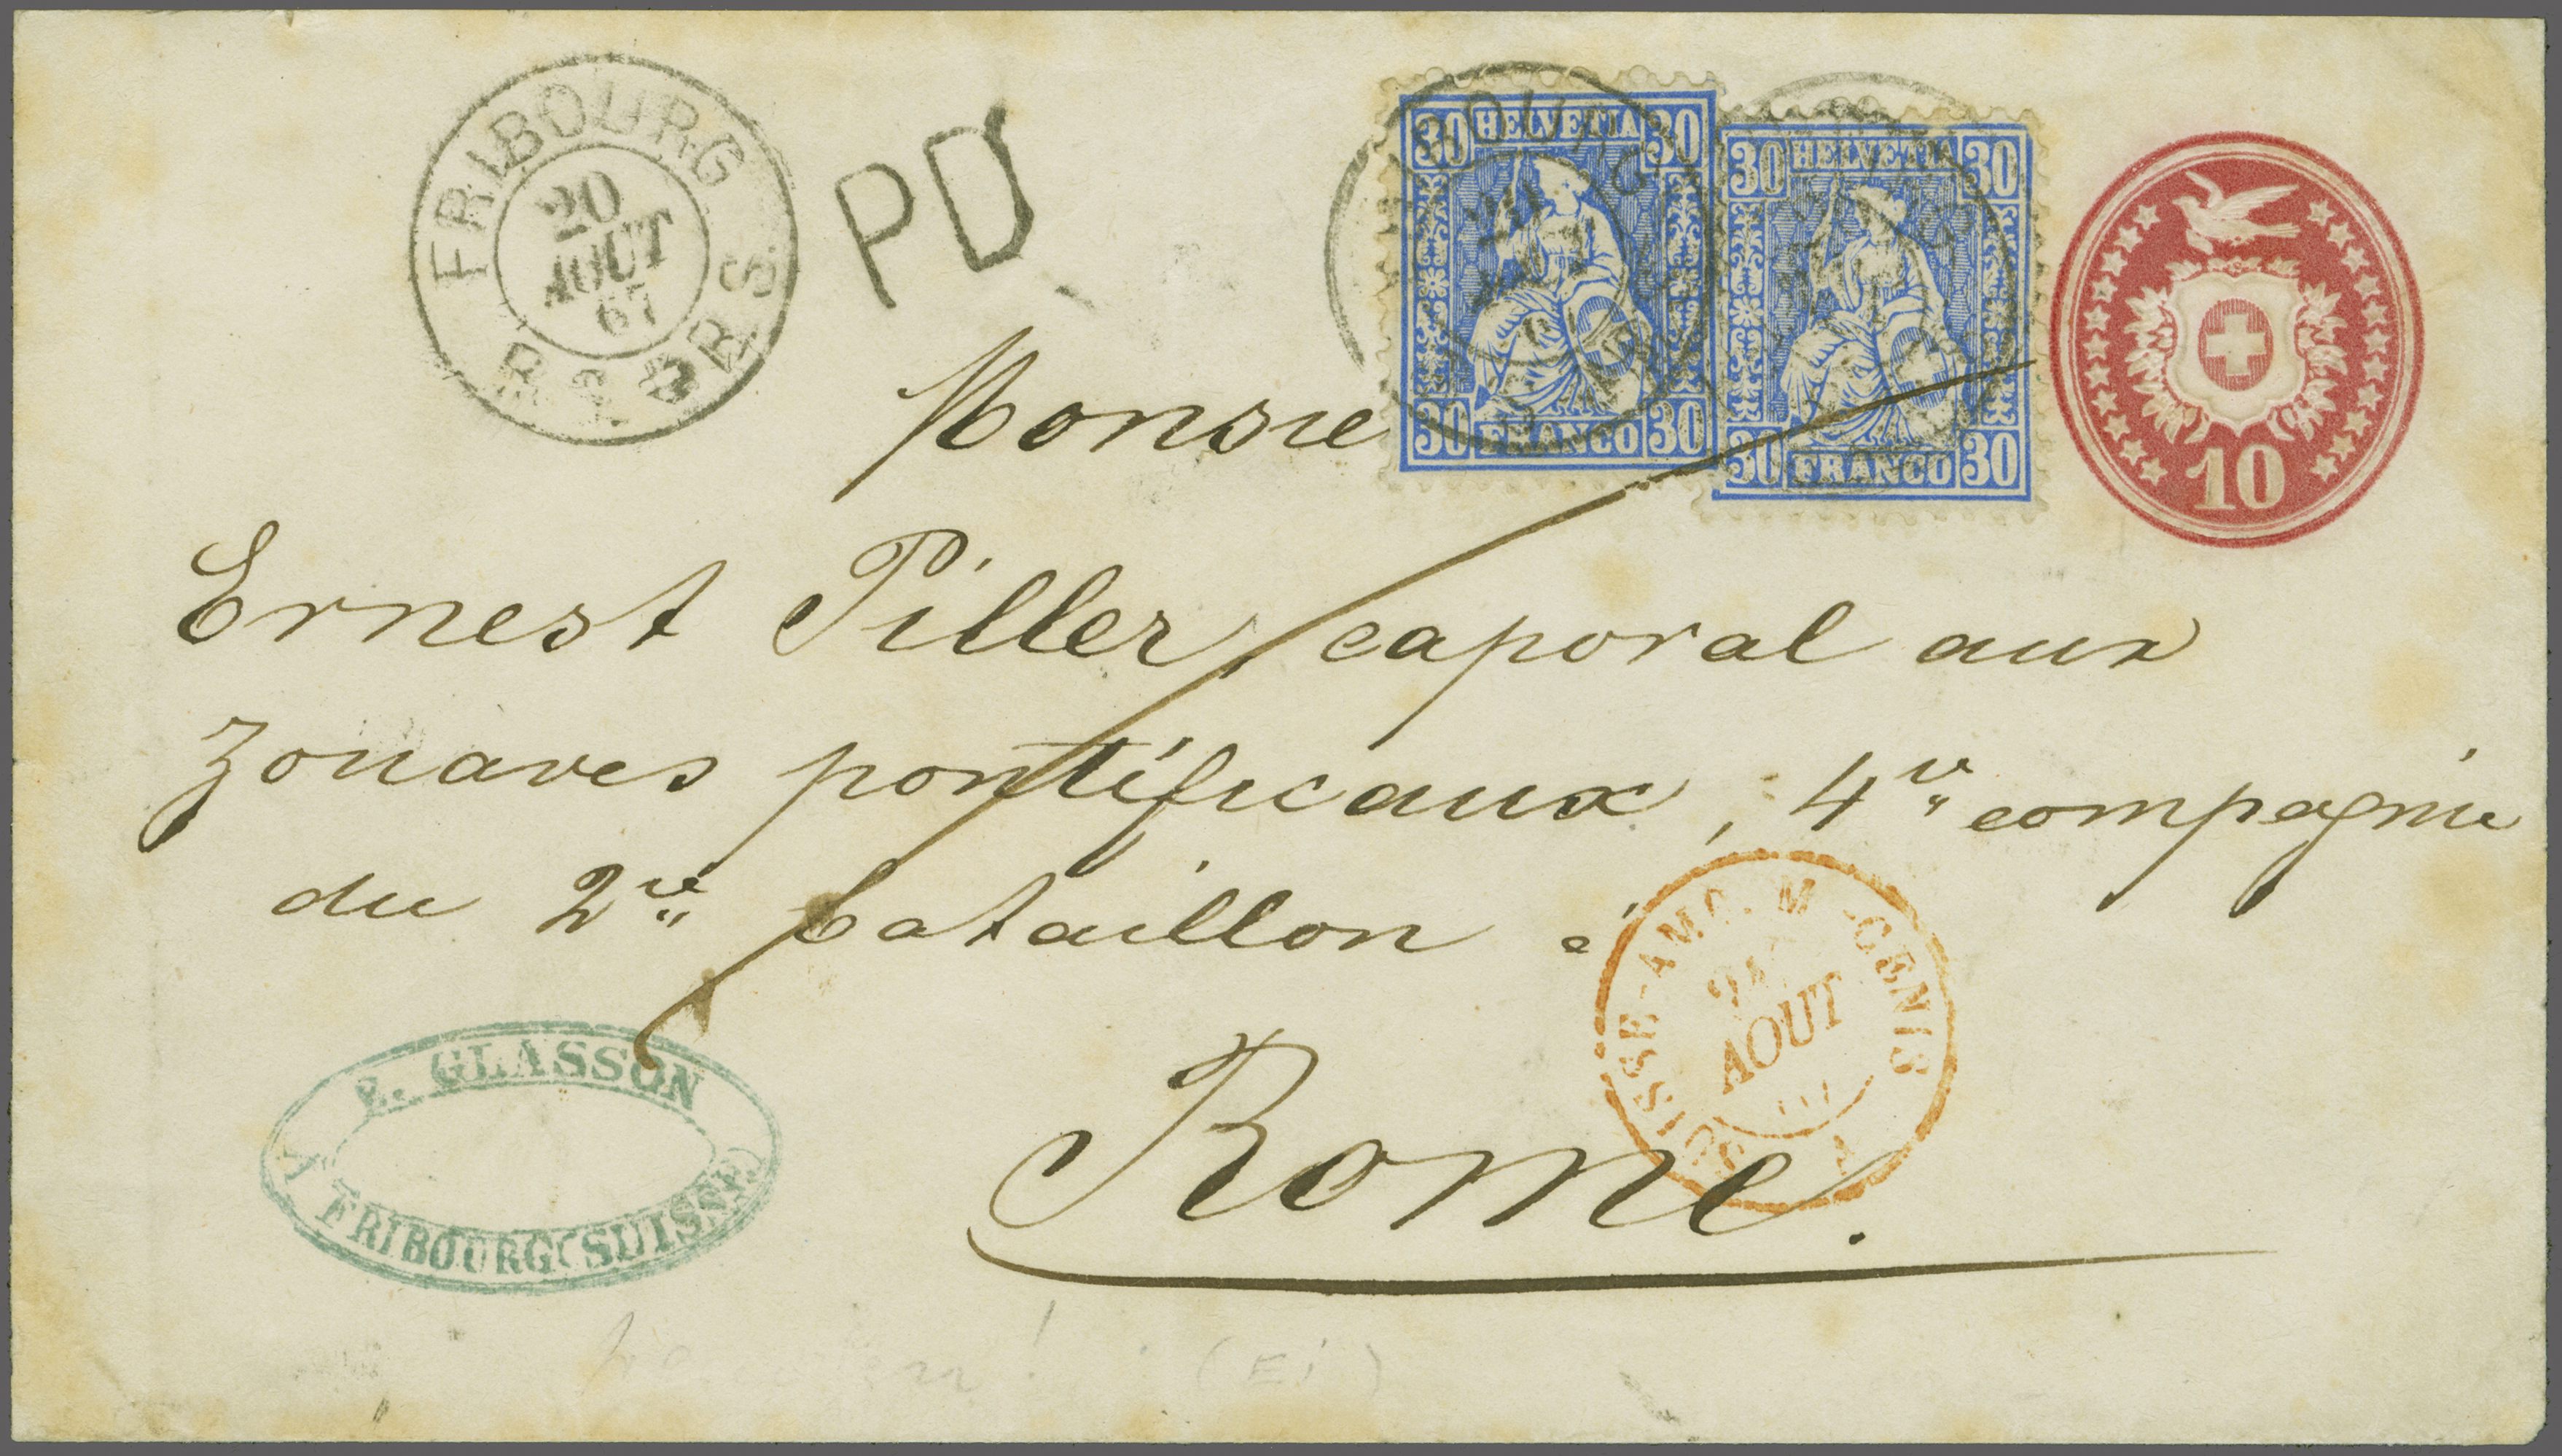 FRIBOURG
20
AOUT
67
PD
30 HELVETIA 30
30 FRANCO 30
30 HELVETIA 30
30 FRANCO 30
10
Monsie
Ernest Piller, caporal aux
Zouaves pontificaux, 4e compagnie
du 2e bataillon à
Rome.
E. GLASSON
A FRIBOURG (SUISSE)
SUISSE-AMB. M-CENIS
AOUT
A
(Ei)